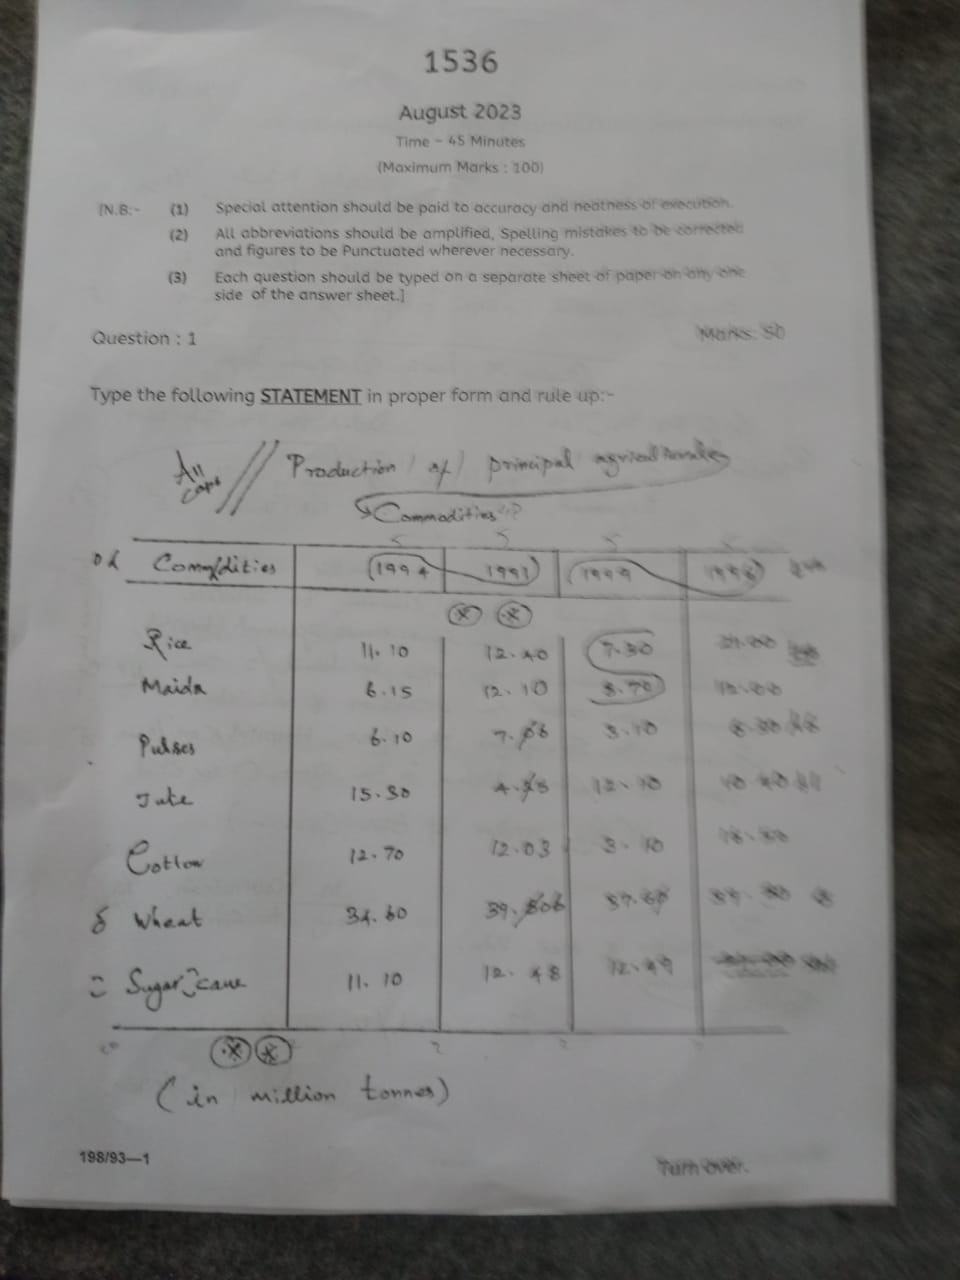 1536
August 2023
Time - 45 Minutes
(Maximum Marks : 100)
[N.B:- (1) Special attention should be paid to accuracy and neatness of execution.
(2) All abbreviations should be amplified, Spelling mistakes to be corrected
and figures to be Punctuated wherever necessary.
(3) Each question should be typed on a separate sheet of paper on any one
side of the answer sheet.]
Question : 1 Marks: 50
Type the following STATEMENT in proper form and rule up:-
All caps // Production of principal
Commodities
Commodities 1994 1991 1999
Rice 11.10 12.40 7.30
Maida 6.15 12.10 8.70
Pulses 6.10 3.10
Jute 15.30 12.10
Cotton 12.70 12.03 3.10
Wheat 34.60
Sugar cane 11.10 12.48 12.49
(in million tonnes)
198/93—1 Turn over.